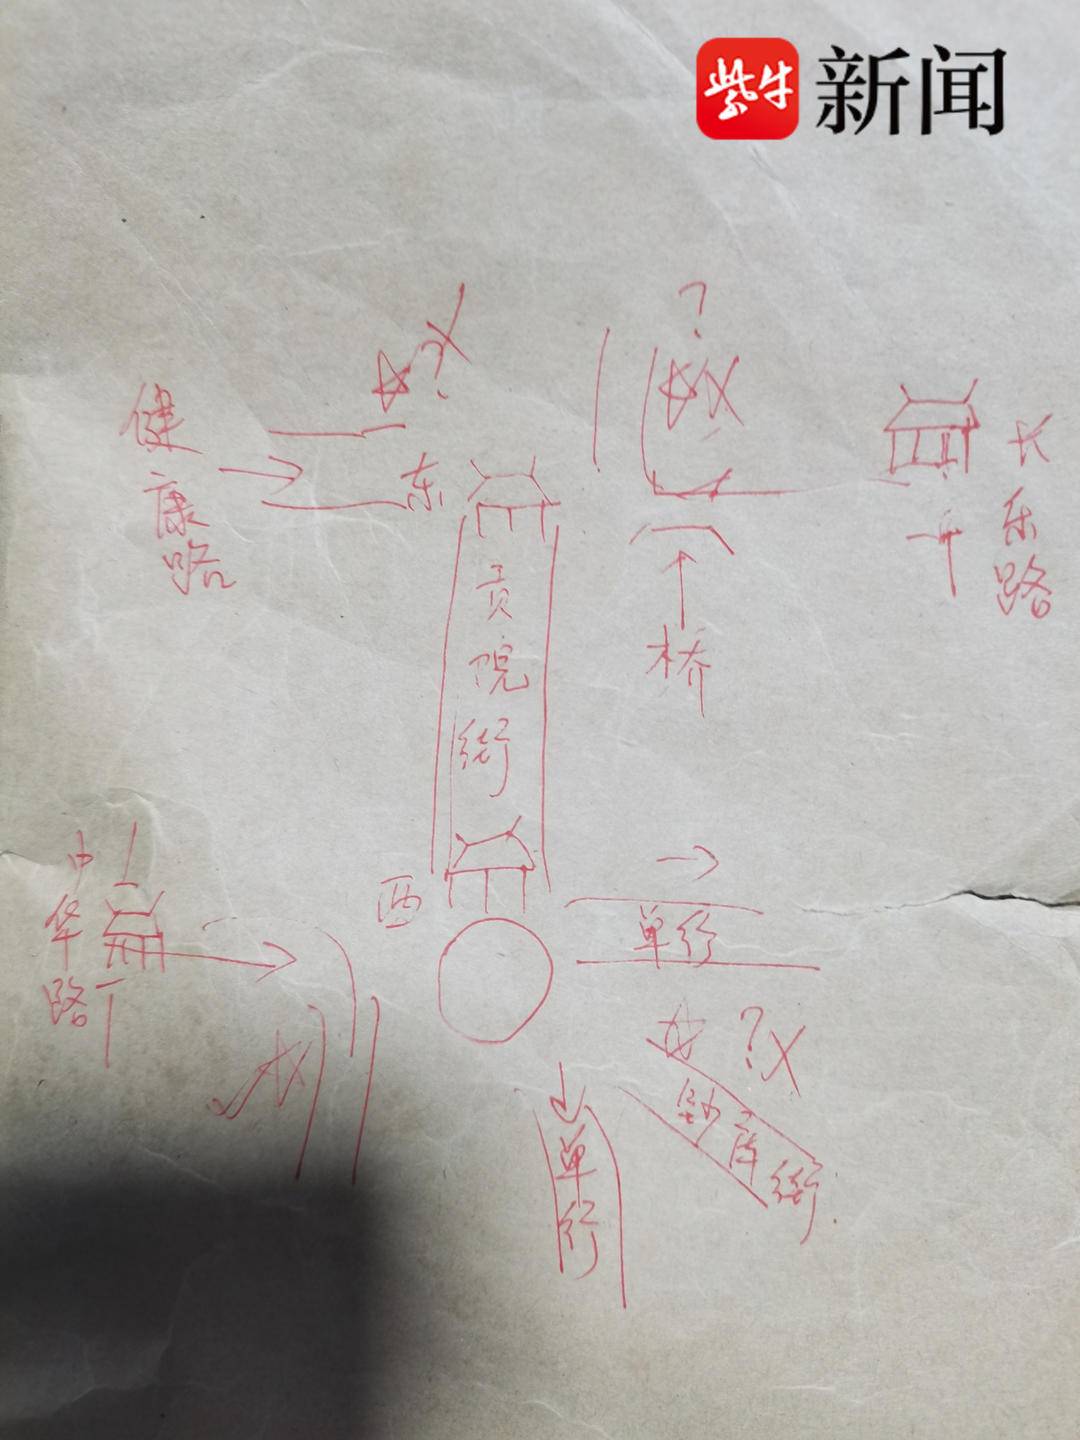 紫牛 新闻
?
?
健康路
东
长乐路
贡院街
桥
中华路
西
单行
?
钞库街
单行